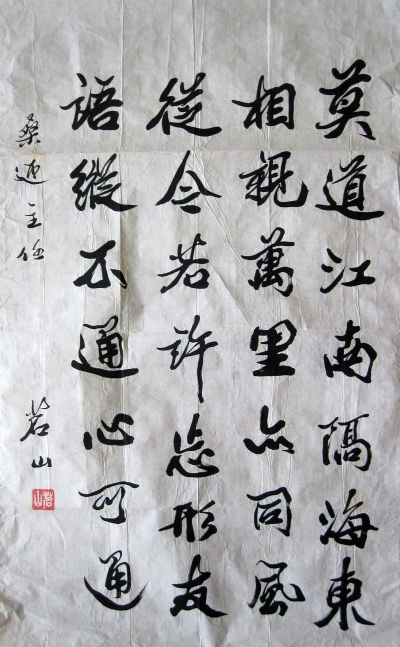 莫道江南隔海東
相親萬里亦同風
從今若許忘形友
語縱不通心可通
桑 主任 茗山
茗山